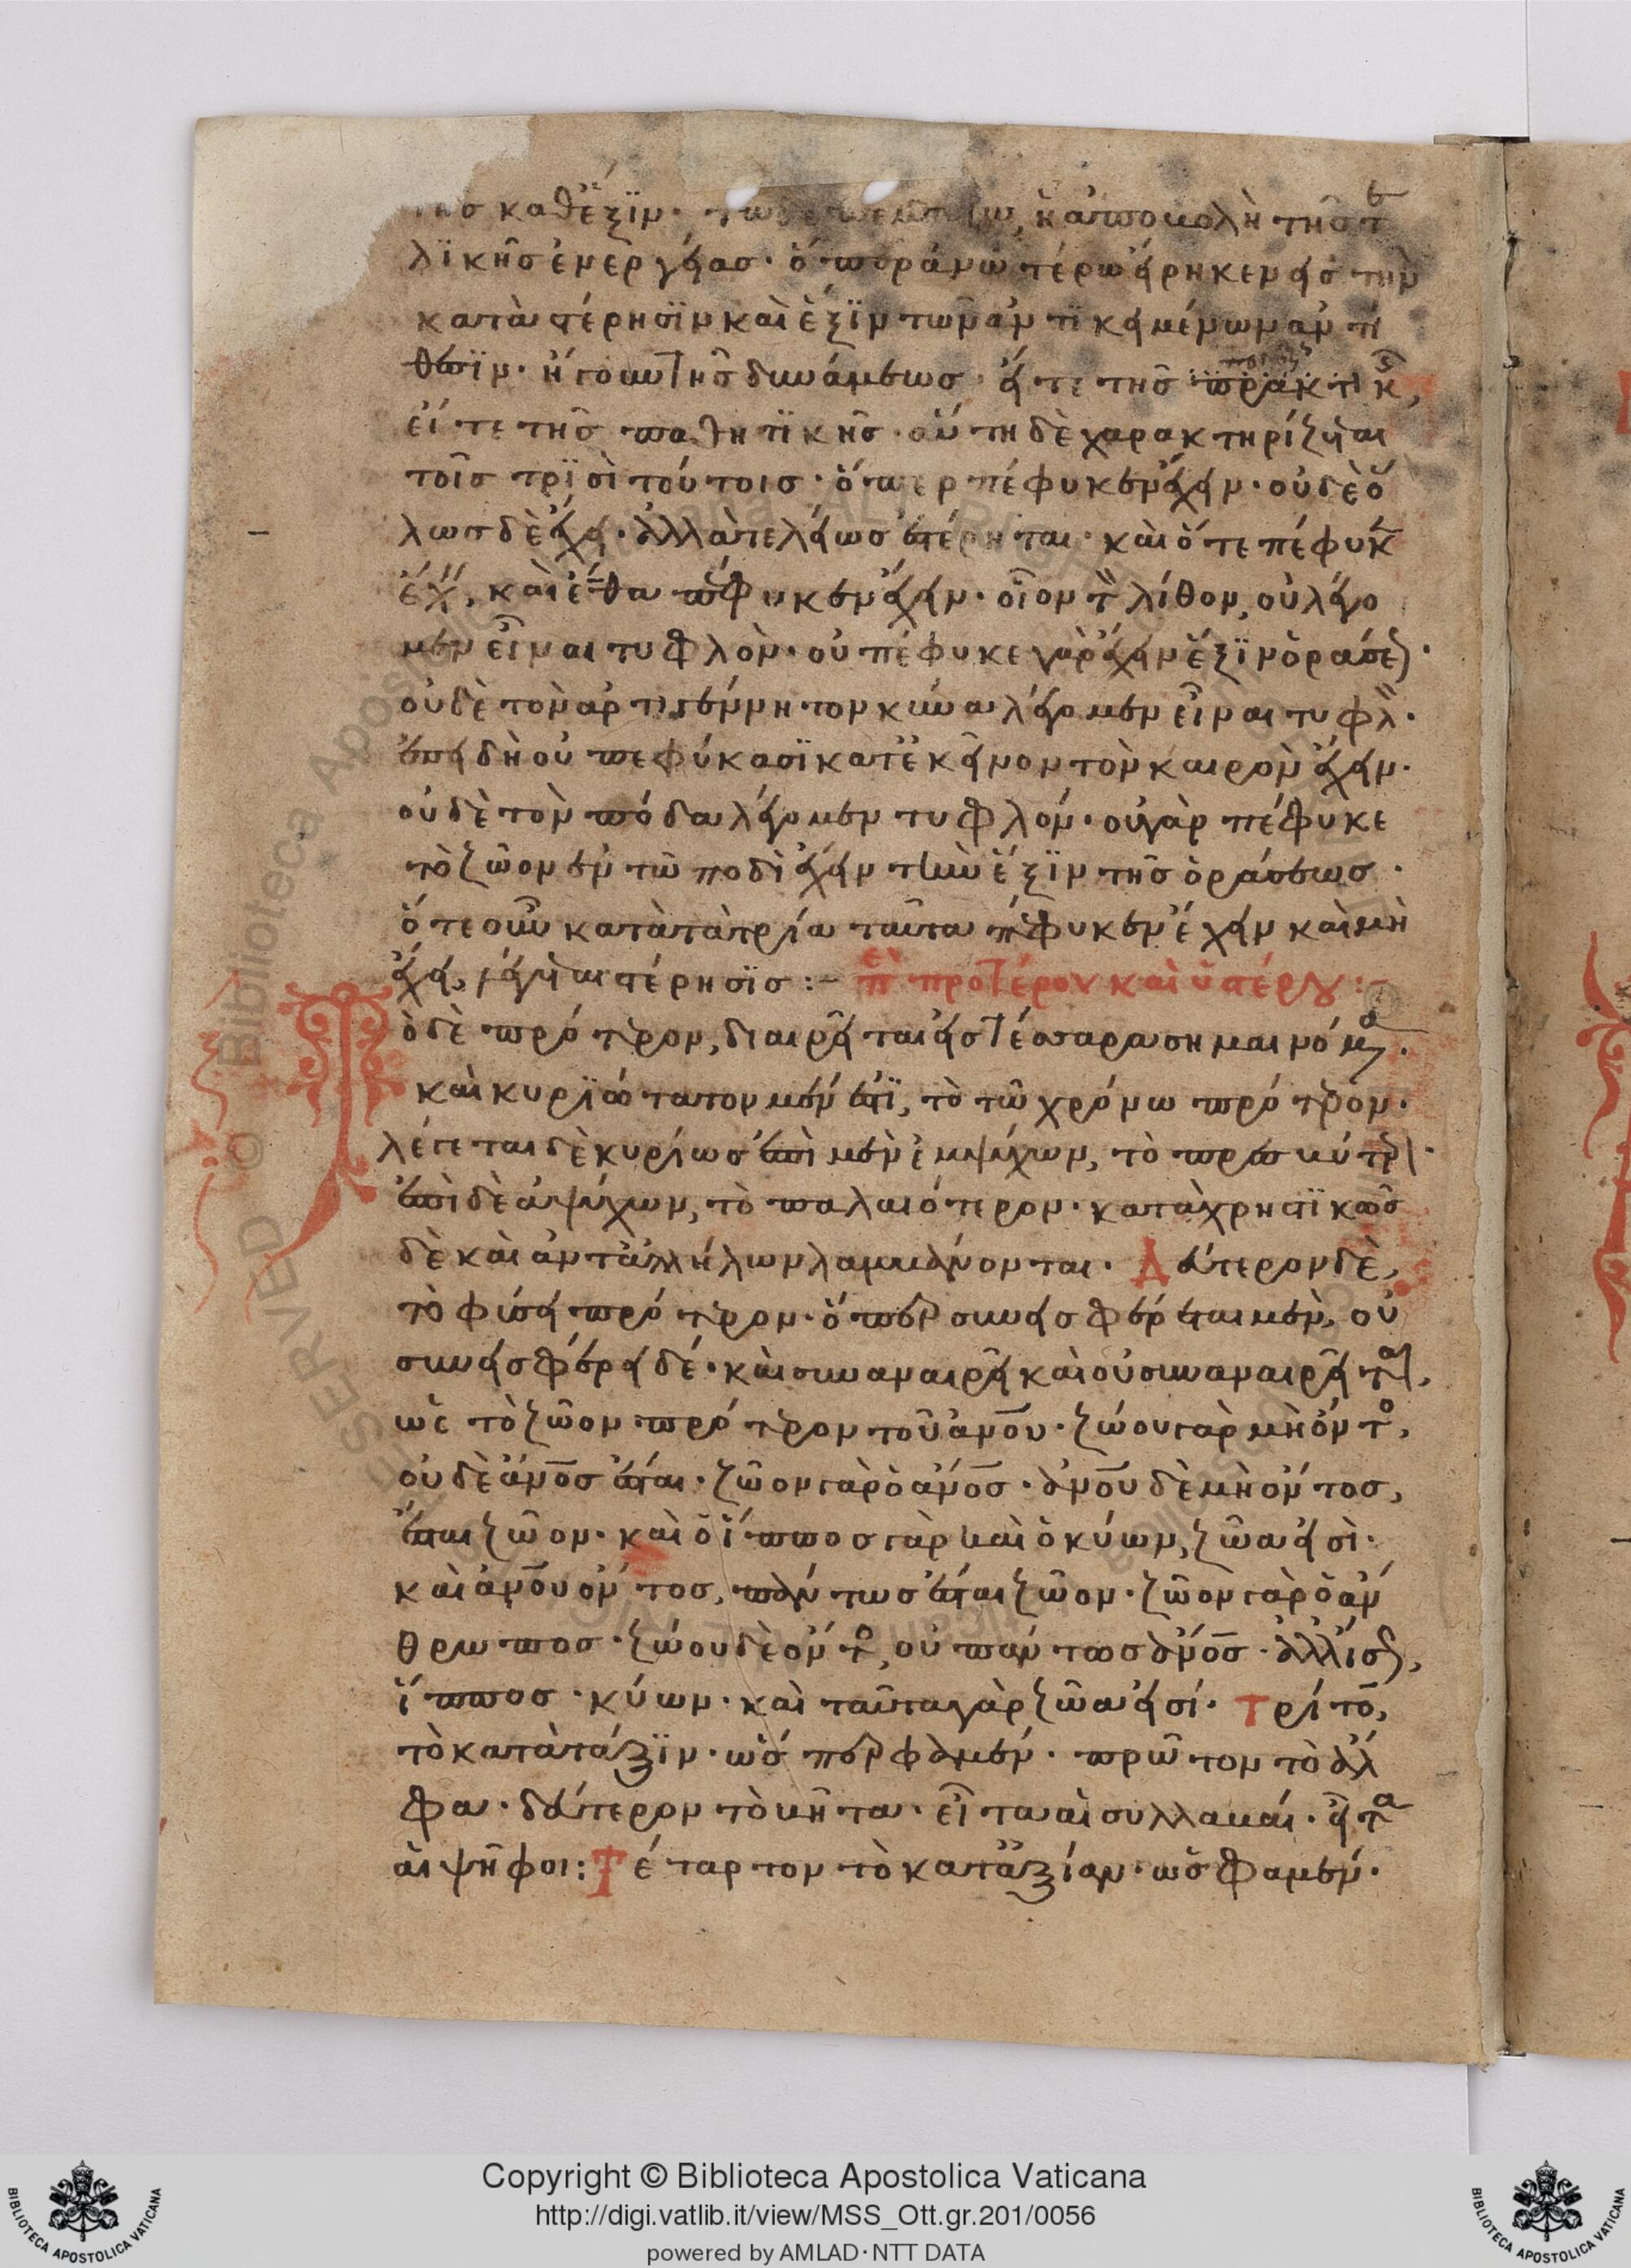 της καθἕξϊν· ἡ ἀποβολὴ τῆς τε
λϊκῆς ἐνεργείας· ὅπερ ἀνωτέρω εἴρηκεν εἰς τὴν
κατὰ στέρησϊν καὶ ἕξϊν τῶν ἀντϊκειμένων ἀντί
θεσϊν· ἤτοι αὐτῆς δυνάμεως· εἴτε τῆς πρακτικῆς,
εἴτε τῆς παθητϊκῆς· αὕτη δὲ χαρακτηρίζεται
τοῖς τρϊσὶ τούτοις· ὅπερ πέφυκεν ἔχειν· οὐδὲ ὅ
λως δὲ ἔχει· ἀλλὰ τελείως ἐστέρηται· καὶ ὅτε πέφυκεν
ἔχειν, καὶ ἔνθα πέφυκεν ἔχειν· οἷον τὸν λίθον, οὐ λέγο
μεν εἶναι τυφλὸν· οὐ πέφυκε γὰρ ἔχειν ἕξϊν ὁράσεως·
οὐδὲ τὸν ἀρτιγέννητον κύνα λέγομεν εἶναι τυφλὸν·
ἐπειδὴ οὐ πεφύκασϊ κατ' ἐκεῖνον τὸν καιρὸν ἔχειν·
οὐδὲ τὸν πόδα λέγομεν τυφλόν· οὐ γὰρ πέφυκε
τὸ ζῶον ἐν τῶ ποδὶ ἔχειν τὴν ἕξϊν τῆς ὁράσεως·
ὅτε οὖν κατὰ τὰ τρία ταῦτα πέφυκεν ἔχειν καὶ μὴ
ἔχει, λέγεται στέρησϊς :– περὶ προτέρου καὶ ὑστέρου :–
Τὸ δὲ πρότερον, διαιρεῖται εἰς τέσσαρα σημαινόμενα·
καὶ κυρϊώτατον μέν ἐστϊ, τὸ τῶ χρόνω πρότερον·
λέγεται δὲ κυρίως ἐπὶ μὲν ἐμψύχων, τὸ πρεσβύτερον·
ἐπὶ δὲ ἀψύχων, τὸ παλαιότερον· καταχρηστϊκῶς
δὲ καὶ ἀντ' ἀλλήλων λαμβάνονται· Δεύτερον δὲ,
τὸ φύσει πρότερον· ὅπερ συνεισφέρεται μὲν, οὐ
συνεισφέρει δέ· καὶ συναναιρεῖ καὶ οὐ συναναιρεῖται,
ὡς τὸ ζῶον πρότερον τοῦ ἀνου· ζώου γὰρ μὴ ὄντος,
οὐδὲ ἄνος ἔσται· ζῶον γὰρ ὁ ἄνος· ἀνου δὲ μὴ ὄντος,
ἔσται ζῶον· καὶ ὁ ἵππος γὰρ καὶ ὁ κύων, ζῶα εἰσὶ·
καὶ ἀνου ὄντος, πάντως ἔσται ζῶον· ζῶον γὰρ ὁ ἄν
θρωπος· ζώου δὲ ὄντος, οὐ πάντως ἄνος· ἀλλ' ἴσως,
ἵππος· κύων· καὶ ταῦτα γὰρ ζῶα εἰσί· Τρίτον,
τὸ κατὰ τάξϊν· ὥσπερ φαμέν· πρῶτον τὸ ἄλ
φα· δεύτερον τὸ βῆτα· εἶτα αἱ συλλαβαί· εἶτα
αἱ ψῆφοι: Τέταρτον τὸ κατ' ἀξίαν· ὥς φαμέν·
Copyright © Biblioteca Apostolica Vaticana
http://digi.vatlib.it/view/MSS_Ott.gr.201/0056
powered by AMLAD·NTT DATA
BIBLIOTECA APOSTOLICA VATICANA
BIBLIOTECA APOSTOLICA VATICANA